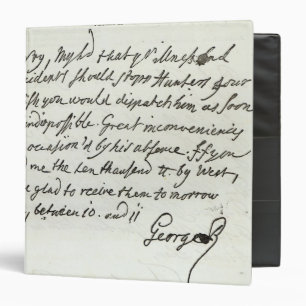 ry, My Ld that yr illness and
cidents should stopp Hunters your
sh you would dispatch him as soon
possible. Great inconveniencys
occasion'd by his absence. If you
me the ten thousand tt. by West,
e glad to receive them to morrow
between 10. and 11
George R